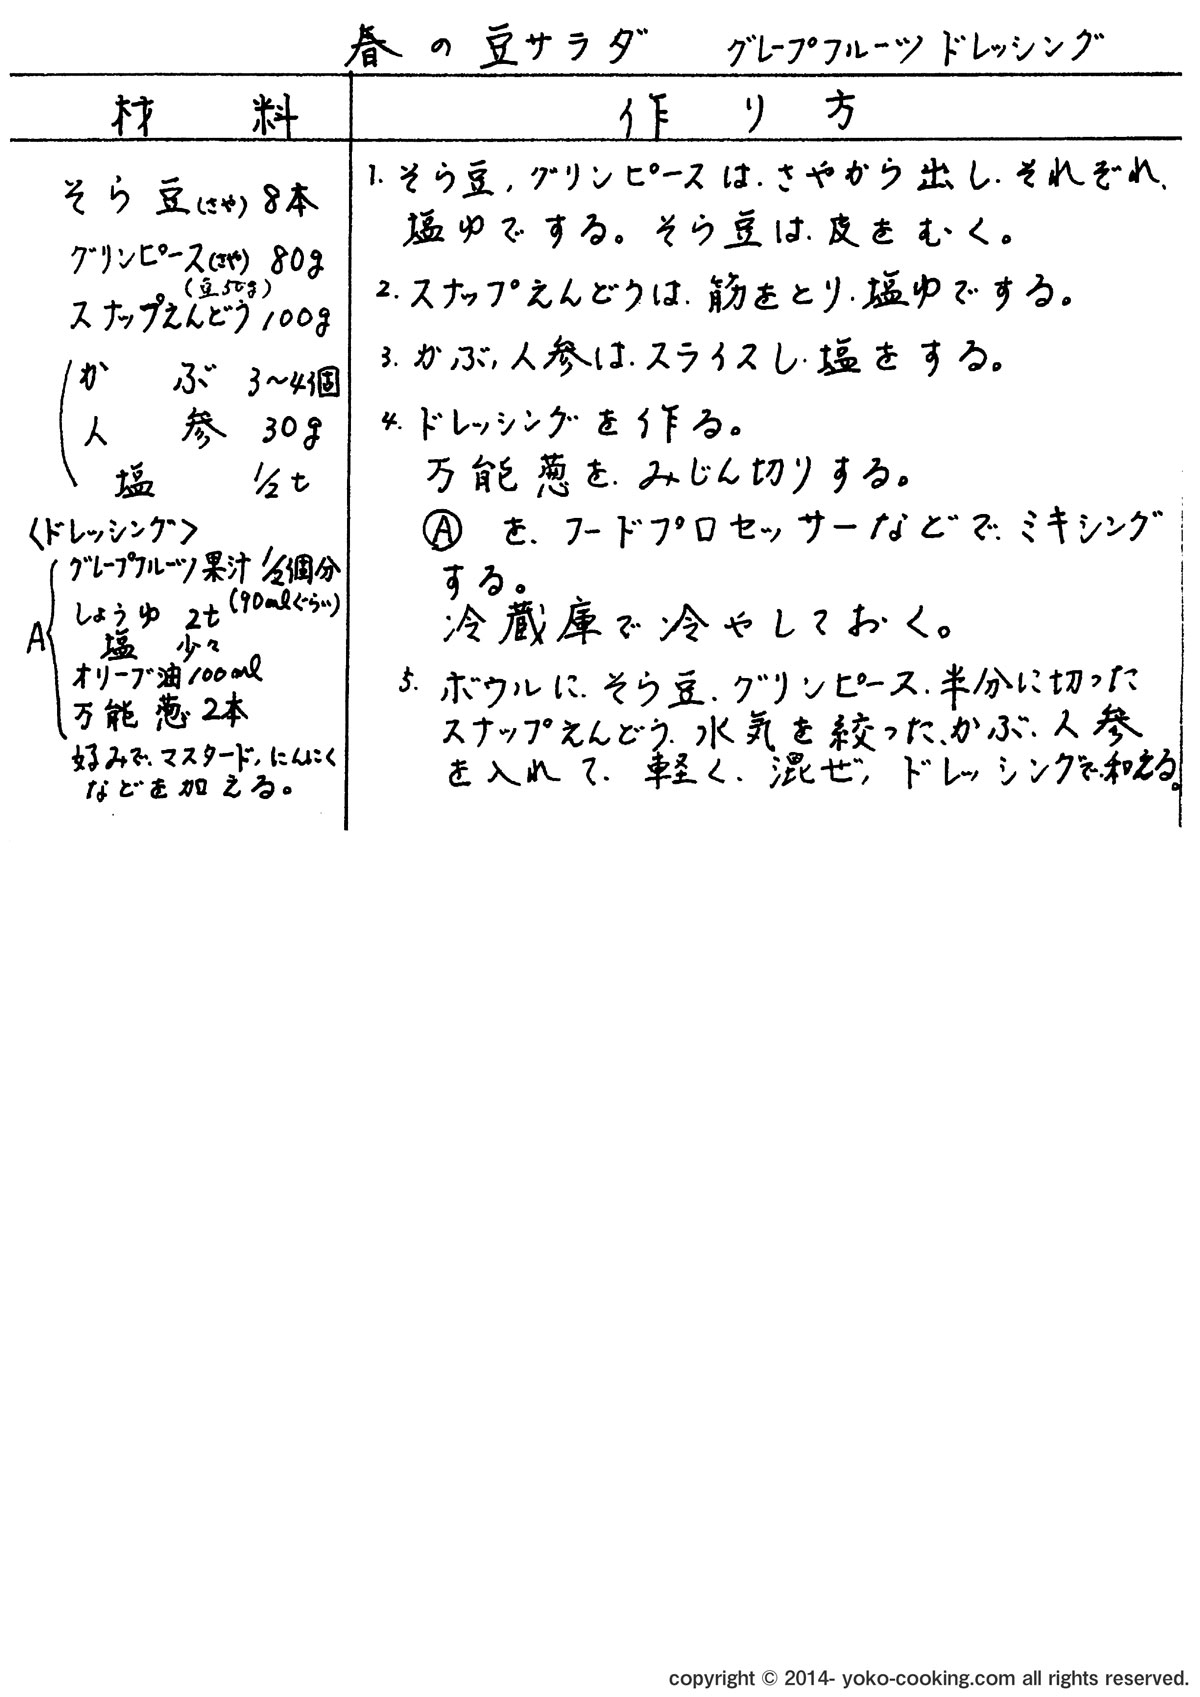 春の豆サラダ グレープフルーツドレッシング
材料
作り方
そら豆(さや) 8本
グリンピース(さや) 80g
(豆50g)
スナップえんどう 100g
かぶ 3〜4個
人参 30g
塩 1/2t
〈ドレッシング〉
A
グレープフルーツ果汁 1/2個分
(90mlぐらい)
しょうゆ 2t
塩 少々
オリーブ油 100ml
万能葱 2本
好みで、マスタード、にんにく
などを加える。
1. そら豆、グリンピースは、さやから出し、それぞれ、
塩ゆでする。そら豆は、皮をむく。
2. スナップえんどうは、筋をとり、塩ゆでする。
3. かぶ、人参は、スライスし、塩をする。
4. ドレッシングを作る。
万能葱を、みじん切りする。
Ⓐ を、フードプロセッサーなどで、ミキシング
する。
冷蔵庫で冷やしておく。
5. ボウルに、そら豆、グリンピース、半分に切った
スナップえんどう、水気を絞った、かぶ、人参
を入れて、軽く、混ぜ、ドレッシングで、和える。
copyright © 2014- yoko-cooking.com all rights reserved.